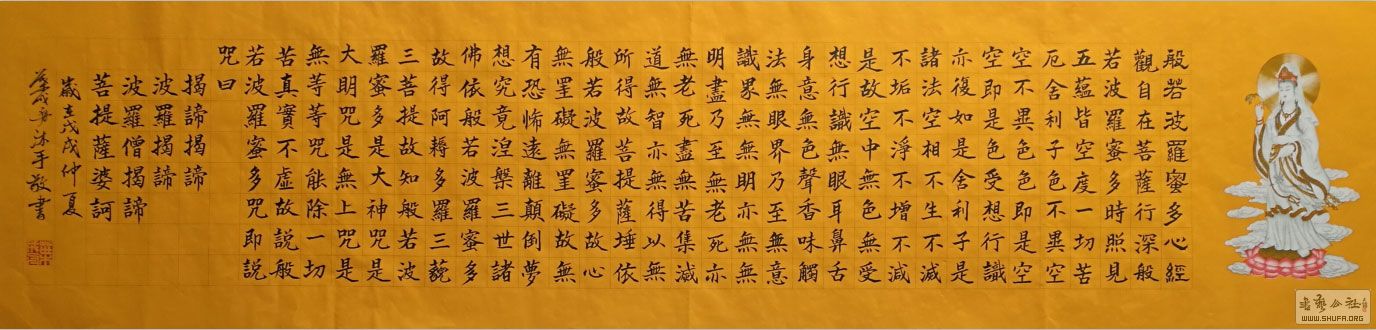 般若波羅蜜多心經
觀自在菩薩行深般
若波羅蜜多時照見
五蘊皆空度一切苦
厄舍利子色不異空
空不異色色即是空
空即是色受想行識
亦復如是舍利子是
諸法空相不生不滅
不垢不淨不增不減
是故空中無色無受
想行識無眼耳鼻舌
身意無色聲香味觸
法無眼界乃至無意
識界無無明亦無無
明盡乃至無老死亦
無老死盡無苦集滅
道無智亦無得以無
所得故菩提薩埵依
般若波羅蜜多故心
無罣礙無罣礙故無
有恐怖遠離顛倒夢
想究竟涅槃三世諸
佛依般若波羅蜜多
故得阿耨多羅三藐
三菩提故知般若波
羅蜜多是大神咒是
大明咒是無上咒是
無等等咒能除一切
苦真實不虛故説般
若波羅蜜多咒即説
咒曰
揭諦揭諦
波羅揭諦
波羅僧揭諦
菩提薩婆訶
歲在戊戌仲夏
沐手敬書
WWW.SHUFA.ORG